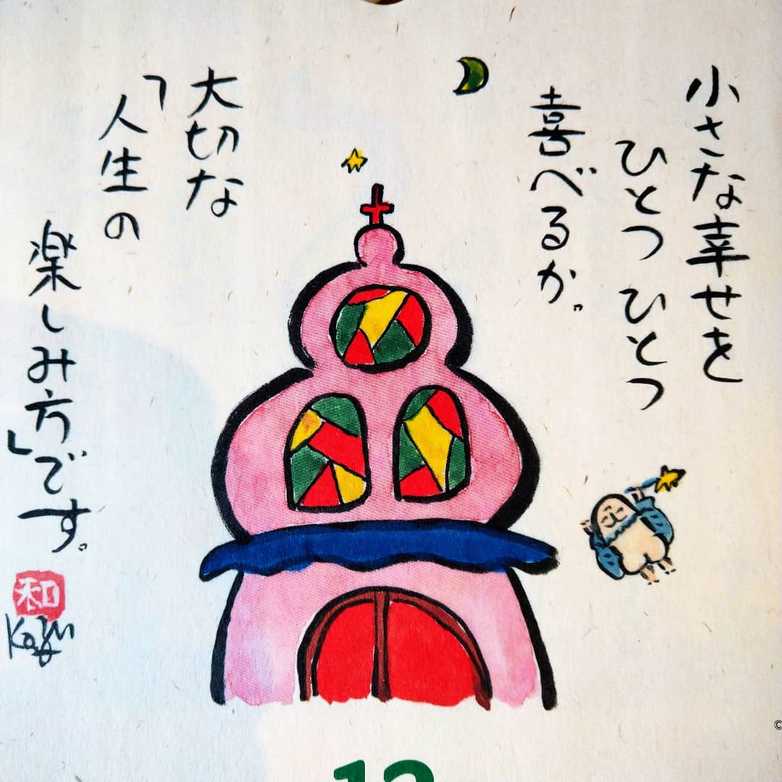 小さな幸せを
ひとつひとつ
喜べるか。
大切な
「人生の
楽しみ方」です。
和
Kazu
12
©